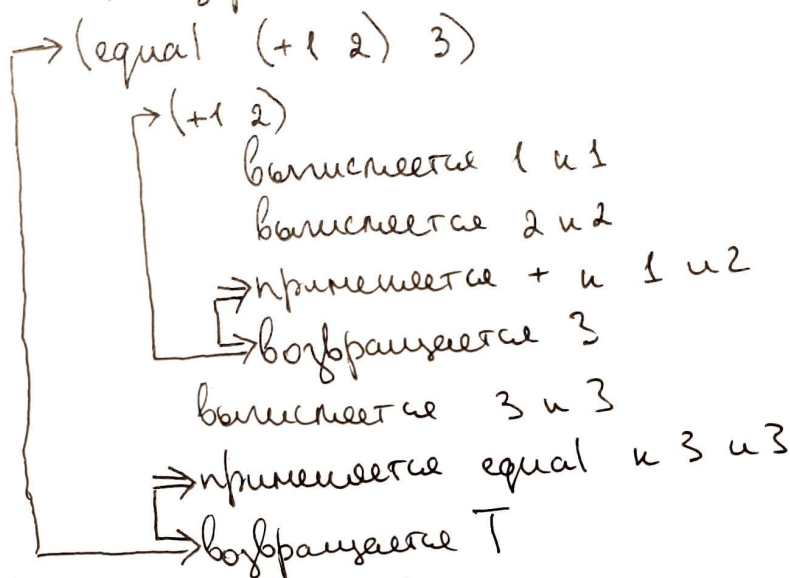 (equal (+1 2) 3)
(+1 2)
вычисляется 1 к 1
вычисляется 2 к 2
применяется + к 1 и 2
возвращается 3
вычисляется 3 к 3
применяется equal к 3 и 3
возвращается T